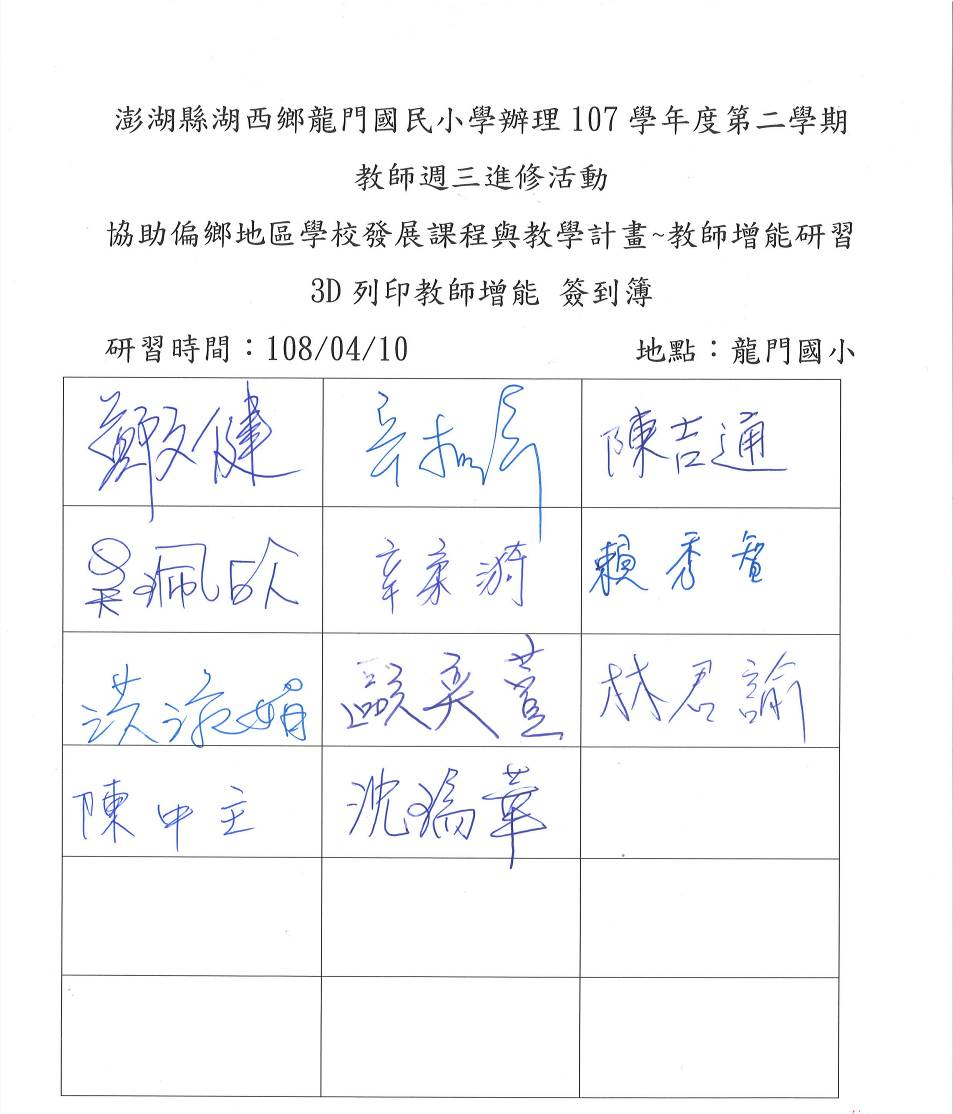 澎湖縣湖西鄉龍門國民小學辦理 107 學年度第二學期
教師週三進修活動
協助偏鄉地區學校發展課程與教學計畫~教師增能研習
3D 列印教師增能 簽到簿
研習時間：108/04/10 地點：龍門國小
鄭文健 陳吉通
吳珮 辛柔漪 賴秀
洪淑媚 歐奕萱 林君諭
陳中主 沈瑞華